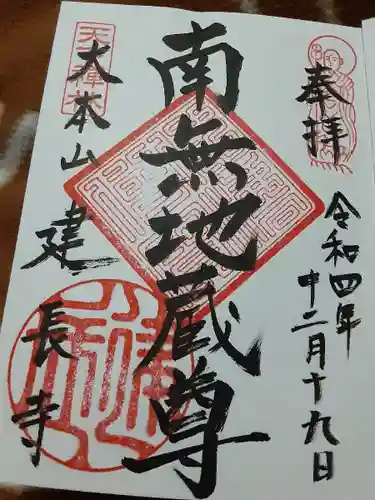 奉拝
令和四年
十二月十九日
南無地蔵尊
大本山建長寺